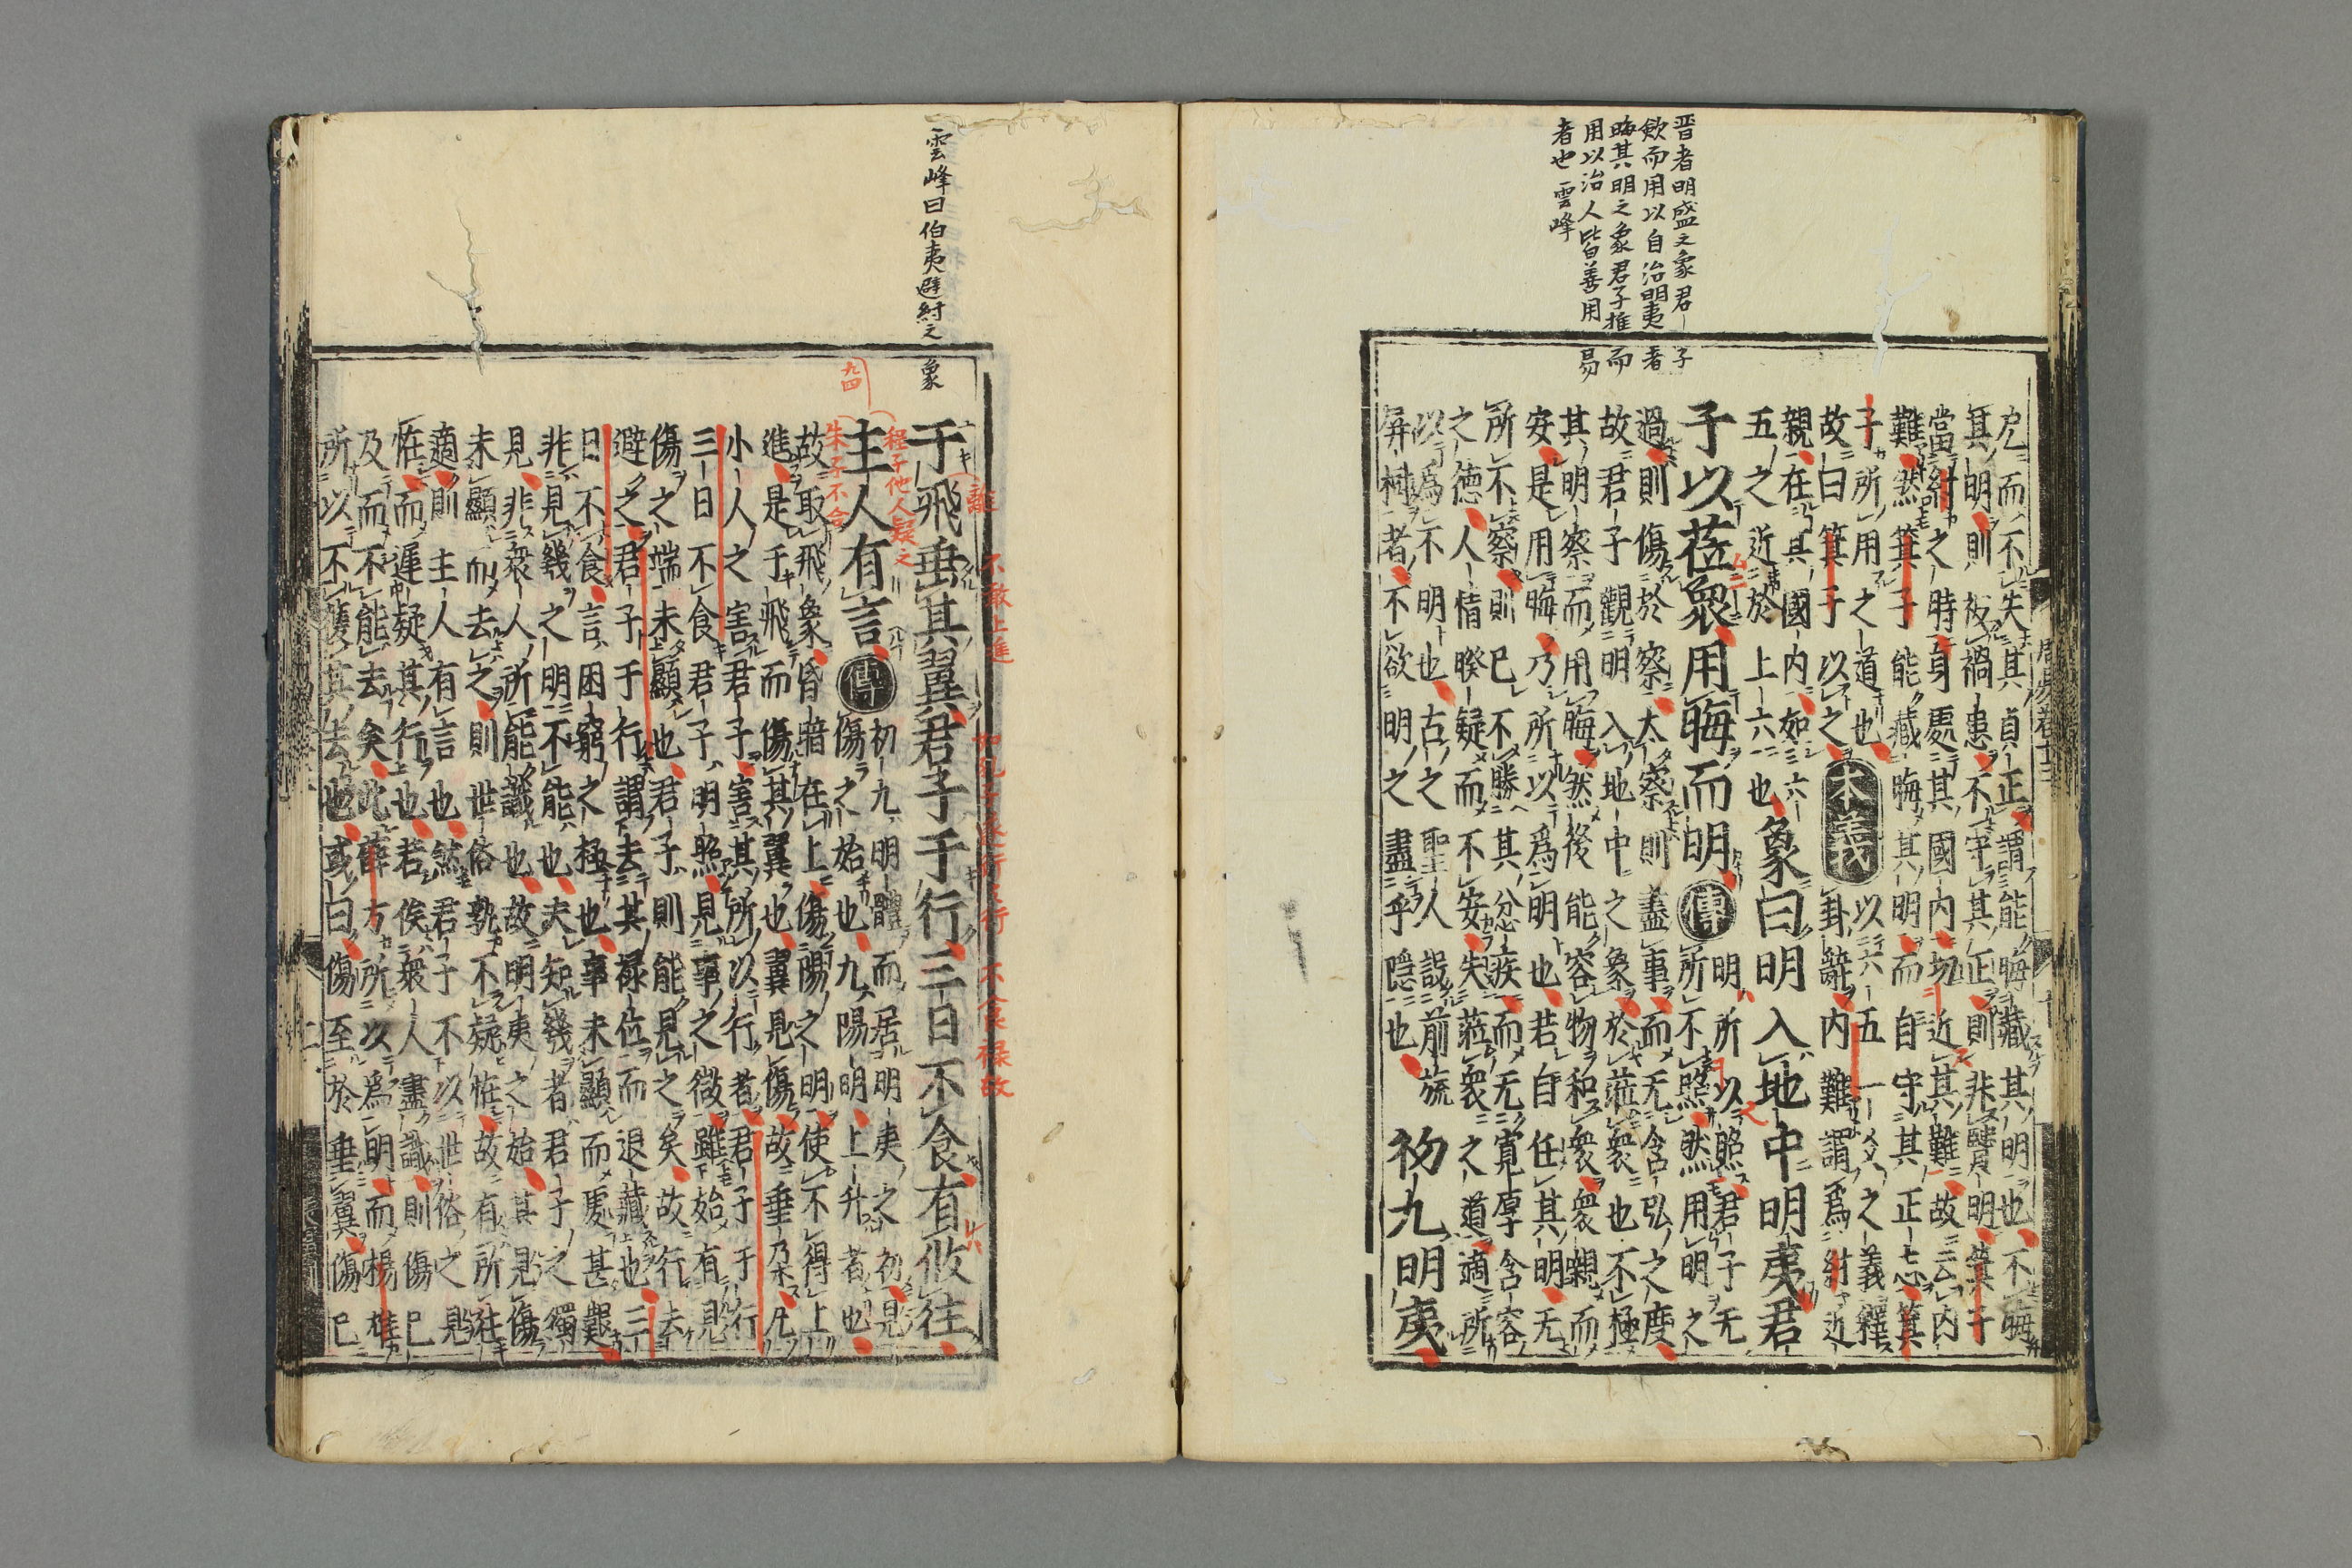 晋者明盛之象君子
歛而用以自治明夷者
晦其明之象君子推而
用以治人皆善用易
者也 雲峰
周易卷十三
戹而不失其貞正謂能晦藏其明也不晦
其明則被禍患不守其正則非賢明箕子
當紂之時身處其國内切近其難故云内
難然箕子能藏晦其明而自守其正志箕
子所用之道也
故曰箕子以之
本義
以六五一爻之義釋
卦辭内難謂爲紂近
親在其國内如六
五之近於上六也
象曰明入地中明夷君
子以莅衆用晦而明
傳
明所以照君子无
所不照然用明之
過則傷於察太察則盡事而无含弘之度
故君子觀明入地中之象於莅衆也不極
其明察而用晦然後能容物和衆衆親而
安是用晦乃所以爲明也若自任其明无
所不察則已不勝其忿疾而无寛厚含容
之德人情暌疑而不安失莅衆之道適所
以爲不明也古之聖人設前旒
屏樹者不欲明之盡乎隠也
初九明夷
雲峰曰伯夷避紂之象
不敢上進
不食祿故
于飛垂其翼君子于行三日不食有攸往
程子他人疑之
朱子不合
九四
主人有言
傳
初九明體而居明夷之初見
傷之始也九陽明上升者也
故取飛象昏暗在上傷陽之明使不得上
進是于飛而傷其翼也翼見傷故垂朶凡
小人之害君子害其所以行者君子于行
三日不食君子明照見事之微雖始有見
傷之端未顯也君子則能見之矣故行去
避之君子于行謂去其祿位而退藏也三
日不食言困窮之極也事未顯而處甚艱
非見幾之明不能也夫知幾者君子之獨
見非衆人所能識也故明夷之始其見傷
未顯而去之則世俗孰不疑怪故有所往
適則主人有言也然君子不以世俗之見
怪而遲疑其行也若俟衆人盡識則傷已
及而不能去矣此薛方所以爲明而楊雄
所以不獲其去也或曰傷至於垂翼傷已